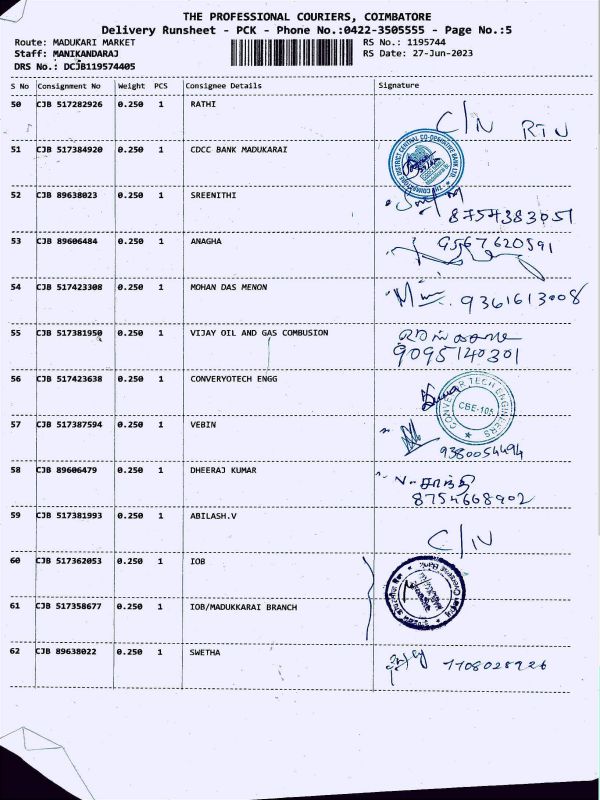 THE PROFESSIONAL COURIERS, COIMBATORE
Delivery Runsheet - PCK - Phone No.:0422-3505555 - Page No.:5
Route: MADUKARI MARKET
RS No.: 1195744
Staff: MANIKANDARAJ
RS Date: 27-Jun-2023
DRS No.: DCJB119574405
S No Consignment No Weight PCS Consignee Details Signature
50 CJB 517282926 0.250 1 RATHI
C/N RTN
51 CJB 517384920 0.250 1 CDCC BANK MADUKARAI
52 CJB 89638023 0.250 1 SREENITHI
8754383051
53 CJB 89606484 0.250 1 ANAGHA
9567620591
54 CJB 517423308 0.250 1 MOHAN DAS MENON
9361613008
55 CJB 517381950 0.250 1 VIJAY OIL AND GAS COMBUSION
9095140301
56 CJB 517423638 0.250 1 CONVERYOTECH ENGG
Kumar
CONVEYOR TECH ENGINEERS
CBE-105
57 CJB 517387594 0.250 1 VEBIN
9380054494
58 CJB 89606479 0.250 1 DHEERAJ KUMAR
N. சாந்தி
8754668902
59 CJB 517381993 0.250 1 ABILASH.V
C/N
60 CJB 517362053 0.250 1 IOB
61 CJB 517358677 0.250 1 IOB/MADUKKARAI BRANCH
62 CJB 89638022 0.250 1 SWETHA